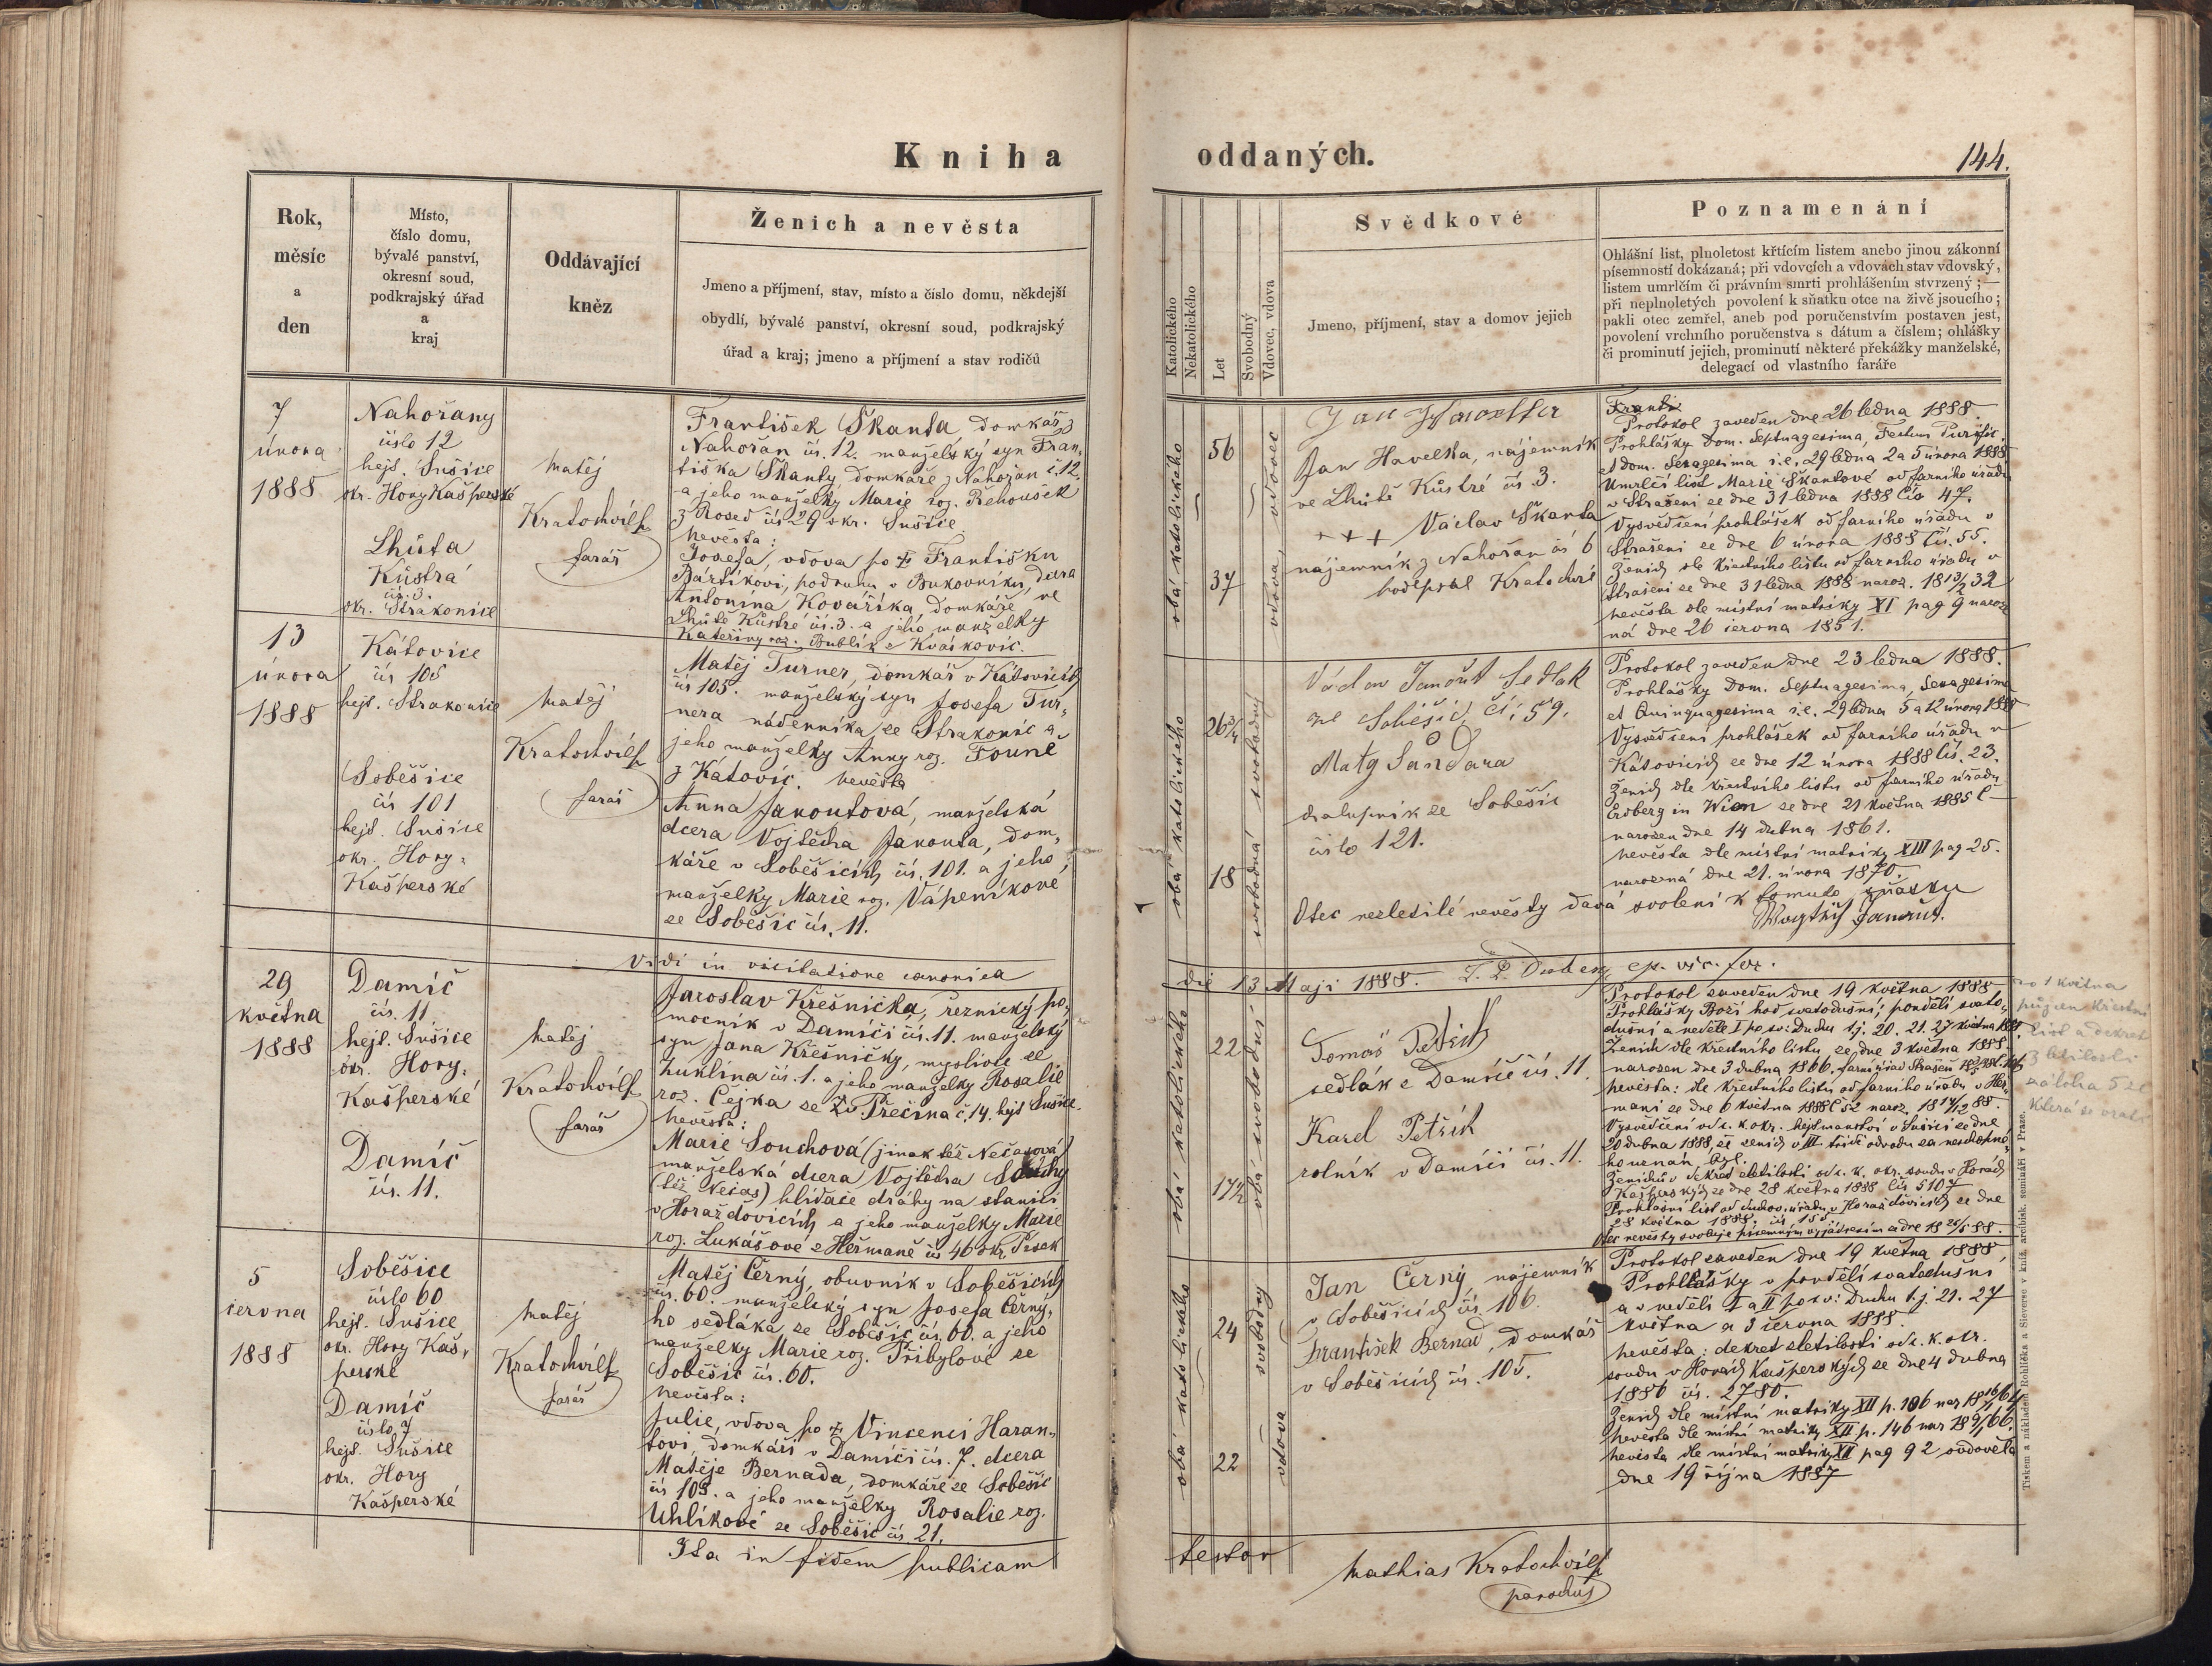 Kniha oddaných.
144.
Rok,
měsíc
a
den
Místo,
číslo domu,
bývalé panství,
okresní soud,
podkrajský úřad
a
kraj
Oddávající
kněz
Ženich a nevěsta
Jmeno a příjmení, stav, místo a číslo domu, někdejší
obydlí, bývalé panství, okresní soud, podkrajský
úřad a kraj; jmeno a příjmení a stav rodičů
Katolického
Nekatolického
Let
Svobodný
Vdovec, vdova
Svědkové
Jmeno, příjmení, stav a domov jejich
Poznamenání
Ohlášní list, plnoletost křtícím listem anebo jinou zákonní
písemností dokázaná; při vdovcích a vdovách stav vdovský,
listem umrlčím či právním smrti prohlášením stvrzený;—
při neplnoletých povolení k sňatku otce na živě jsoucího;
pakli otec zemřel, aneb pod poručenstvím postaven jest,
povolení vrchního poručenstva s dátum a číslem; ohlášky
či prominutí jejich, prominutí některé překážky manželské,
delegací od vlastního faráře
7
února
1888
Nahořany
číslo 12
hejt. Sušice
okr. Hory Kašperské
Lhůta
Kůstrá
čís. 3.
okr. Strakonice
Matěj
Kratochvíl
farář
František Škanta domkář z
Nahořan čís. 12. manželský syn Fran-
tiška Škanty, domkáře z Nahořan č. 12.
a jeho manželky Marie roz. Řehoušek
z Rosed čís 29 okr. Sušice
nevěsta:
Josefa, vdova po † Františku
Bártíkovi, podruhu v Bukovníku, dcera
Antonína Kováříka, domkáře ve
Lhůtě Kůstré čís. 3. a jeho manželky
Kateřiny roz. Bublík z Kváskovic.
obá katolického
56
37
vdovec
vdova
Jan Havelka, nájemník
ve Lhůtě Kůstré čís 3.
+++ Václav Škanta
nájemník z Nahořan čís 6
podepsal Kratochvíl
Protokol zaveden dne 26 ledna 1888.
Prohlášky Dom. Septuagesima, Festum Purific.
et Dom. Sexagesima i.e. 29 ledna 2 a 5 února 1888
Umrlčí list Marie Škantové od farního úřadu
v Strašeni ze dne 31 ledna 1888 Čís 47.
Vysvědčení prohlášek od farního úřadu v
Strašeni ze dne 6 února 1888 Čís. 55.
Ženich dle křestního listu od farního úřadu v
Strašeni ze dne 31 ledna 1888 naroz. 18 13/2 32
nevěsta dle místní matriky XI pag 9 naroze
ná dne 26 června 1851.
13
února
1888
Kátovice
čís 105
hejt. Strakonice
Soběšice
čís 101
hejt. Sušice
okr. Hory-
Kašperské
Matěj
Kratochvíl
farář
Matěj Turner, domkář v Kátovicích
čís 105. manželský syn Josefa Tur-
nera nádenníka ze Strakonic a
jeho manželky Anny roz. Founě
z Kátovic. nevěsta
Anna Janoutová, manželská
dcera Vojtěcha Janouta, dom-
káře v Soběšicích čís. 101. a jeho
manželky Marie roz. Vápeníkové
ze Soběšic čís. 11.
obá katolického
26 3/4
18
svobodný
svobodná
Václav Janout Sedlák
ze Soběšic, čí; 59.
Matg Šandara
chalupník ze Soběšic
číslo 121.
Protokol zaveden dne 23 ledna 1888.
Prohlášky Dom. Septuagesima, Sexagesima
et Quinquagesima i.e. 29 ledna 5 a 12 února 1888
Vysvědčení prohlášek od farního úřadu v
Kátovicích ze dne 12 února 1888 Čís. 23.
Ženich dle křestního listu od farního úřadu
Erdberg in Wien ze dne 21 května 1885 č—
narozen dne 14 dubna 1861.
nevěsta dle místní matriky XIII pag 25.
narozená dne 21. února 1870.
Otec nezletilé nevěsty dává svolení k tomuto sňatku
Wogtěch Janout.
Vidi in visitatione canonica
die 13 Maji 1888.
29
května
1888
Damíč
čís. 11
hejt. Sušice
okr. Hory-
Kašperské
Damíč
čís. 11.
Matěj
Kratochvíl
farář
Jaroslav Křešnička, řeznický po-
mocník v Damíči čís. 11. manželský
syn Jana Křešničky, myslivce ze
čís. 1. a jeho manželky Rosalie
roz. Čejka ze Žv. Přečina č. 14. hejt Sušice.
nevěsta:
Marie Souchová (jinak též Nečasová)
manželská dcera Vojtěcha Souchy
(též Nečas) hlídače dráhy na stanici
v Horažďovicích a jeho manželky Marie
roz. Lukášové z Heřmaně čís 46 okr. Písek
obá katolického
22
17 1/2
obá svobodní
Tomáš Petřich
sedlák z Damíče čís. 11.
Karel Petřík
rolník v Damíči čís. 11.
Protokol zaveden dne 19 května 1888
Prohlášky Boží hod svatodušní, pondělí svato-
dušní a neděle I po sv: Duchu tj. 20. 21. 27 května 1888.
Ženich dle křestního listu ze dne 3 května 1888.
narozen dne 3 dubna 1866.
nevěsta: dle křestního listu od farního úřadu v Heř-
mani ze dne 6 května 1888 č 52 naroz.
Vysvědčení od c. k. okr. hejtmanství v Sušici ze dne
20 dubna 1888, že ženich v III třídě odvodu za neschopné-
ho uznán byl.
Ženichův dekret zletilosti od c. k. okr. soudu v Horách
Kašperských ze dne 28 května 1888 čís 5107
Prohlášní list od duchov. úřadu v Horažďovicích ze dne
28 května 1888. čís. 155
Otec nevěsty svoluje písemným vyjádřením
5
června
1888
Soběšice
číslo 60
hejt. Sušice
okr. Hory Kaš-
perské
Damíč
číslo 7
hejt. Sušice
okr. Hory
Kašperské
Matěj
Kratochvíl
farář
Matěj Černý, obuvník v Soběšicích
čís. 60. manželský syn Josefa Černý-
ho sedláka ze Soběšic čís 60. a jeho
manželky Marie roz. Přibylové ze
Soběšic čís. 60.
nevěsta:
Julie, vdova po † Vincenci Haran-
tovi, domkáři v Damíči čís. 7. dcera
Matěje Bernada, domkáře ze Soběšic
čís 105. a jeho manželky Rosalie roz.
Uhlíkové ze Soběšic čís 21.
obá katolického
24
22
svobodný
vdova
Jan Černý nájemník
v Soběšicích čís. 106.
František Bernad, domkář
v Soběšicích čís. 105.
Protokol zaveden dne 19 května 1888,
Prohlášky v pondělí svatodušní
a v neděli I a II po sv: Duchu t.j. 21. 27
května a 3 června 1888.
nevěsta: dekret zletilosti od c. k. okr.
soudu v Horách Kašperských ze dne 4 dubna
1886 čís. 2780.
Ženich dle místní matriky XII p. 106 nar 18 16/2 64
nevěsta dle místní matriky XII p. 146 nar
nevěsta dle místní matriky XII pag 92 ovdověla
dne 19 října 1887
Ita in fidem publicam
testor
Mathias Kratochvíl
parochus
Tiskem a nákladem Rohlíčka a Sieverse v kníž. arcibisk. semináři v Praze.